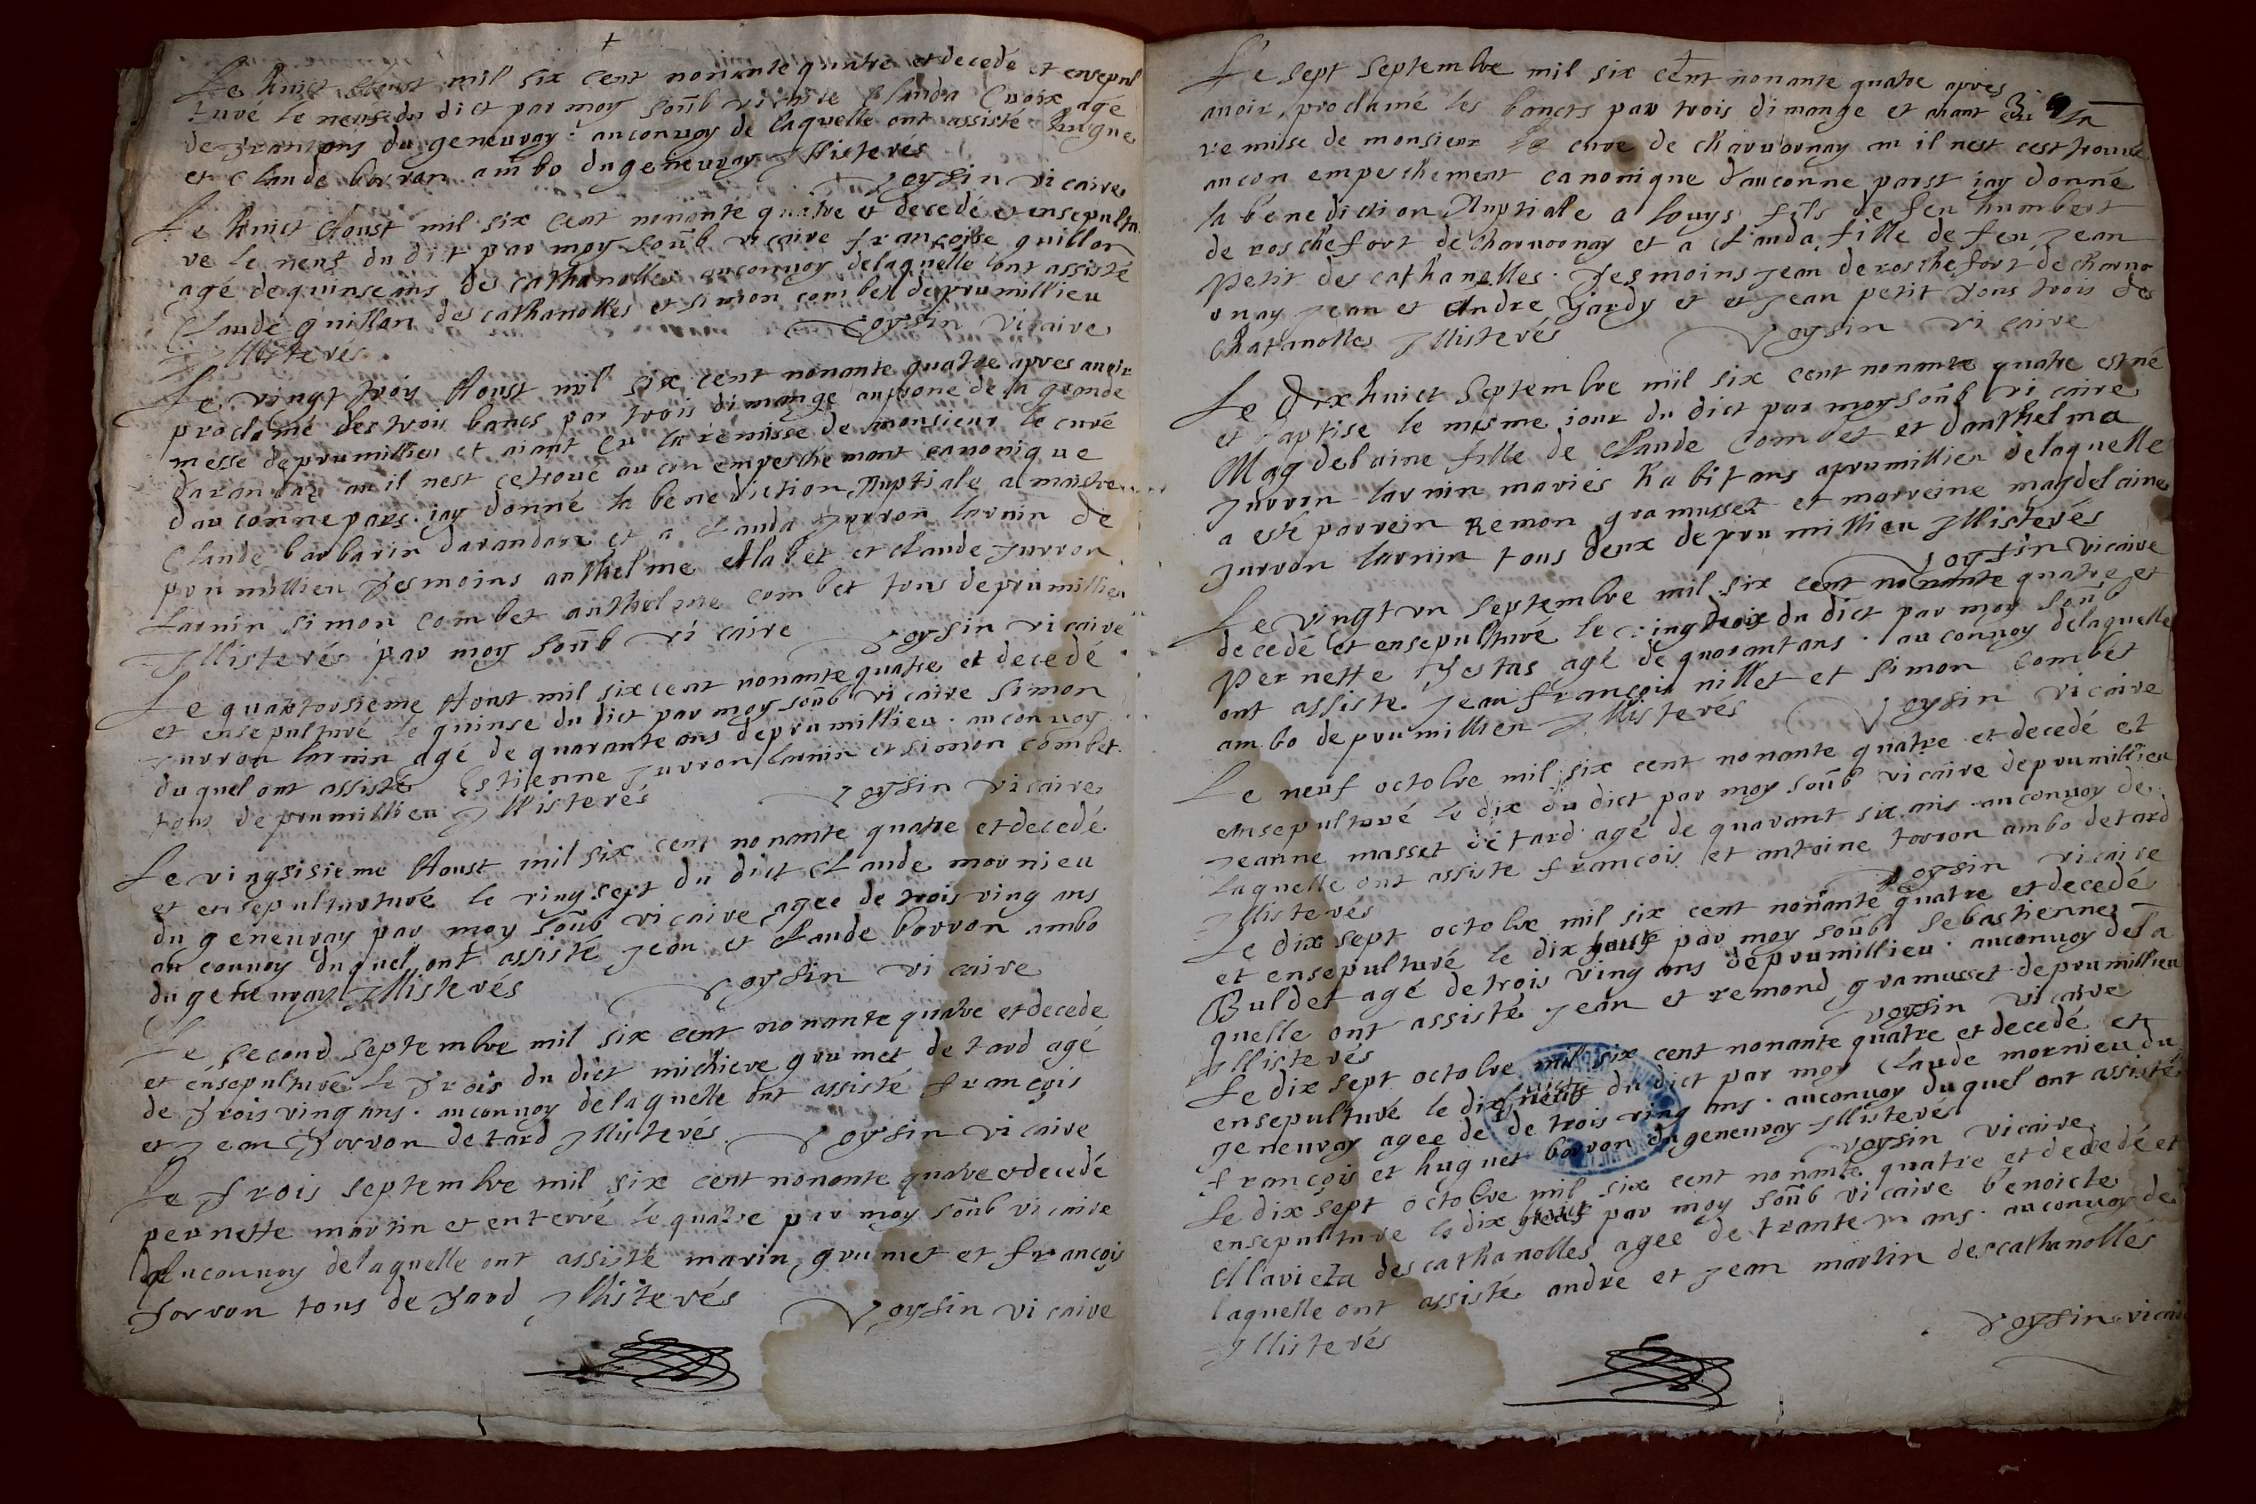 Le huict Aoust mil six cent nonante quatre et decedé et ensepul
turé le neuf du dict par moy soub vicaire Clauda Croix agé
de trant ans du geneuray . au conuoy de laquelle ont assisté hugue
et Claude borron ambo du geneuray Illisterés
Voysin vicaire
Le huict Aoust mil six cent nonante quatre et decedé et ensepultu
re le neuf du dit par moy soub vicaire francoise guillon
agé de quinse ans des cathanolles au conuoy de laquelle ont assisté
Claude guillon des cathanolles et simon combet de prumillieu
Illisterés Voysin vicaire
Le vingt troy Aoust mil six cent nonante quatre apres auoir
proclamé les trois bancs par trois dimange au prone de la grande
messe de prumillieu et aiant eu la remisse de monsieur le curé
darandas ou il nest cetrouc aucun empeschemant canonique
dauconne pars . jay donné la benediction Nuptiale a maistre
Claude barbarin darandas et a Clauda Jurron larnin de
prumillieu Tesmoins anthelme Allabet et Claude Jurron
larnin simon combet anthelme combet tous de prumillieu
Illisterés par moy soub vicaire Voysin vicaire
Le quatorsieme Aoust mil six cent nonante quatre et decedé
et ensepulturé le quinse du dict par moy soub vicaire simon
Jurron larnin agé de quarante ans de prumillieu . au conuoy
du quel ont assisté Estienne Jurron larnin et simon combet
tous de prumillieu Illisterés Voysin vicaire
Le vingsisieme Aoust mil six cent nonante quatre et decedé
et ensepulturturé le ving sept du dict Claude mornieu
du geneuray par moy soub vicaire agee de trois ving ans
au conuoy duquel ont assisté jean et Claude borron ambo
du geneuray Illisterés Voysin vicaire
Le second septembre mil six cent nonante quatre et decede
et ensepulturé le trois du dict michiere grumet de tard agé
de trois ving ans . au conuoy de laquelle ont assisté françois
et jean Torron de tard Illisterés Voysin vicaire
Le trois septembre mil six cent nonante quatre et decedé
pernette martin et enterré le quatre par moy soub vicaire
Auconuoy de laquelle ont assisté marin grumet et françois
Torron tous de Tard Illisterés Voysin vicaire
Le sept septembre mil six cent nonante quatre apres
auoir proclamé les bancts par trois dimange et aiant eu la
remise de monsieur le cure de charuornay ou il nest cest trouue
aucon empeschement canonique dauconne parst jay donné
la benediction Nuptiale a louys fils de feu humbert
de roschefort de charuornay et a Clauda fille de feu jean
Petit des cathanelles . Tesmoins jean de roschefort de charuo
rnay jean et Andre Gardy et et jean petit tous trois des
Chatanolles Illisterés Voysin vicaire
Le Dixhuict Septembre mil six cent nonante quatre est né
et baptise le mesme jour du dict par moy soub vicaire
Magdelaine fille de Claude Combet et danthelma
Jurron larnin mariés habitans a prumillieu de laquelle
a esté parrein Remon gramusset et marreine magdelaine
Jurron larnin tous deux de prumillieu Illisterés
Voysin vicaire
Le vingt vn septembre mil six cent nonante quatre et
decedé et ensepulturé le ving trois du dict par moy soub
Pernette Testas agé de quarant ans . au conuoy de laquelle
ont assiste jean françois nillet et simon combet
ambo de prumillieu Illisterés Voysin vicaire
Le neuf octobre mil six cent nonante quatre et decedé et
ensepulturé le dix du dict par moy soub vicaire de prumillieu
jeanne masset de tard agé de quarant six ans . au conuoy de
laquelle ont assiste francois et antoine torron ambo de tard
Illisterés Voysin vicaire
Le dix sept octobre mil six cent nonante quatre et decedé
et ensepulturé le dix huict par moy soub Sebastienne
Buldet agé de trois ving ans de prumillieu . au conuoy de la
quelle ont assisté jean et remond gramusset de prumillieu
Illisterés Voysin vicaire
Le dix sept octobre mil six cent nonante quatre et decedé et
ensepulturé le dix huict du dict par moy Claude mornieu du
geneuray agee de de trois ving ans . au conuoy duquel ont assisté
françois et huguet borron du geneuray Illisterés
Voysin vicaire
Le dix sept octobre mil six cent nonante quatre et decedé et
ensepulture le dix huict par moy soub vicaire benoicte
Allavieta des cathanolles agee de trante vn ans . au conuoy de
laquelle ont assisté andre et jean martin des cathanolles
Illisterés Voysin vicaire